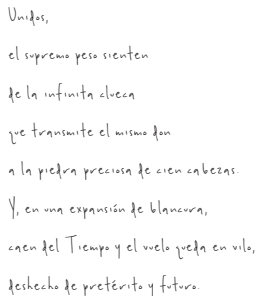 Unidos,
el supremo peso sienten
de la infinita clueca
que transmite el mismo don
a la piedra preciosa de cien cabezas.
Y, en una expansión de blancura,
caen del Tiempo y el vuelo queda en vilo,
deshecho de pretérito y futuro.